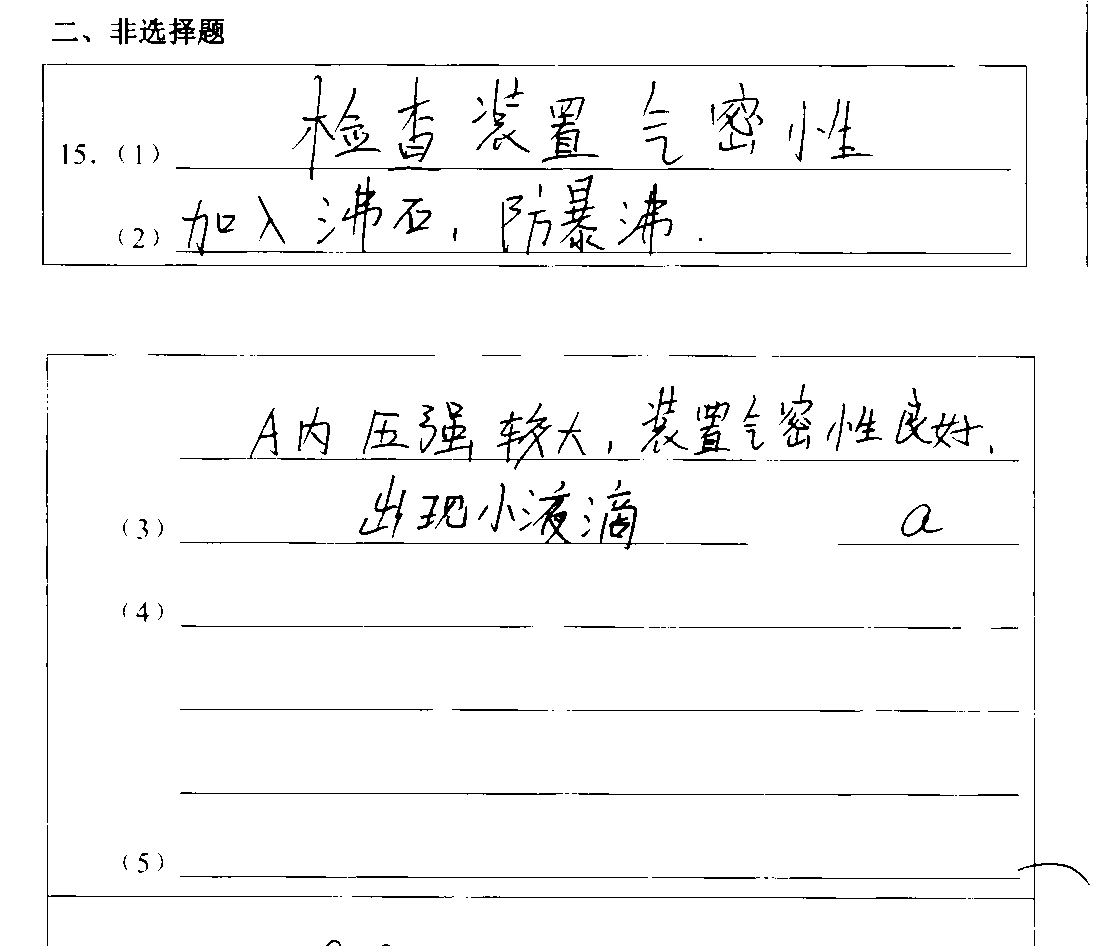 二、非选择题
15.（1） 检查装置气密性
（2） 加入沸石，防暴沸.
A内压强较大，装置气密性良好.
（3） 出现小液滴 a
（4）
（5）